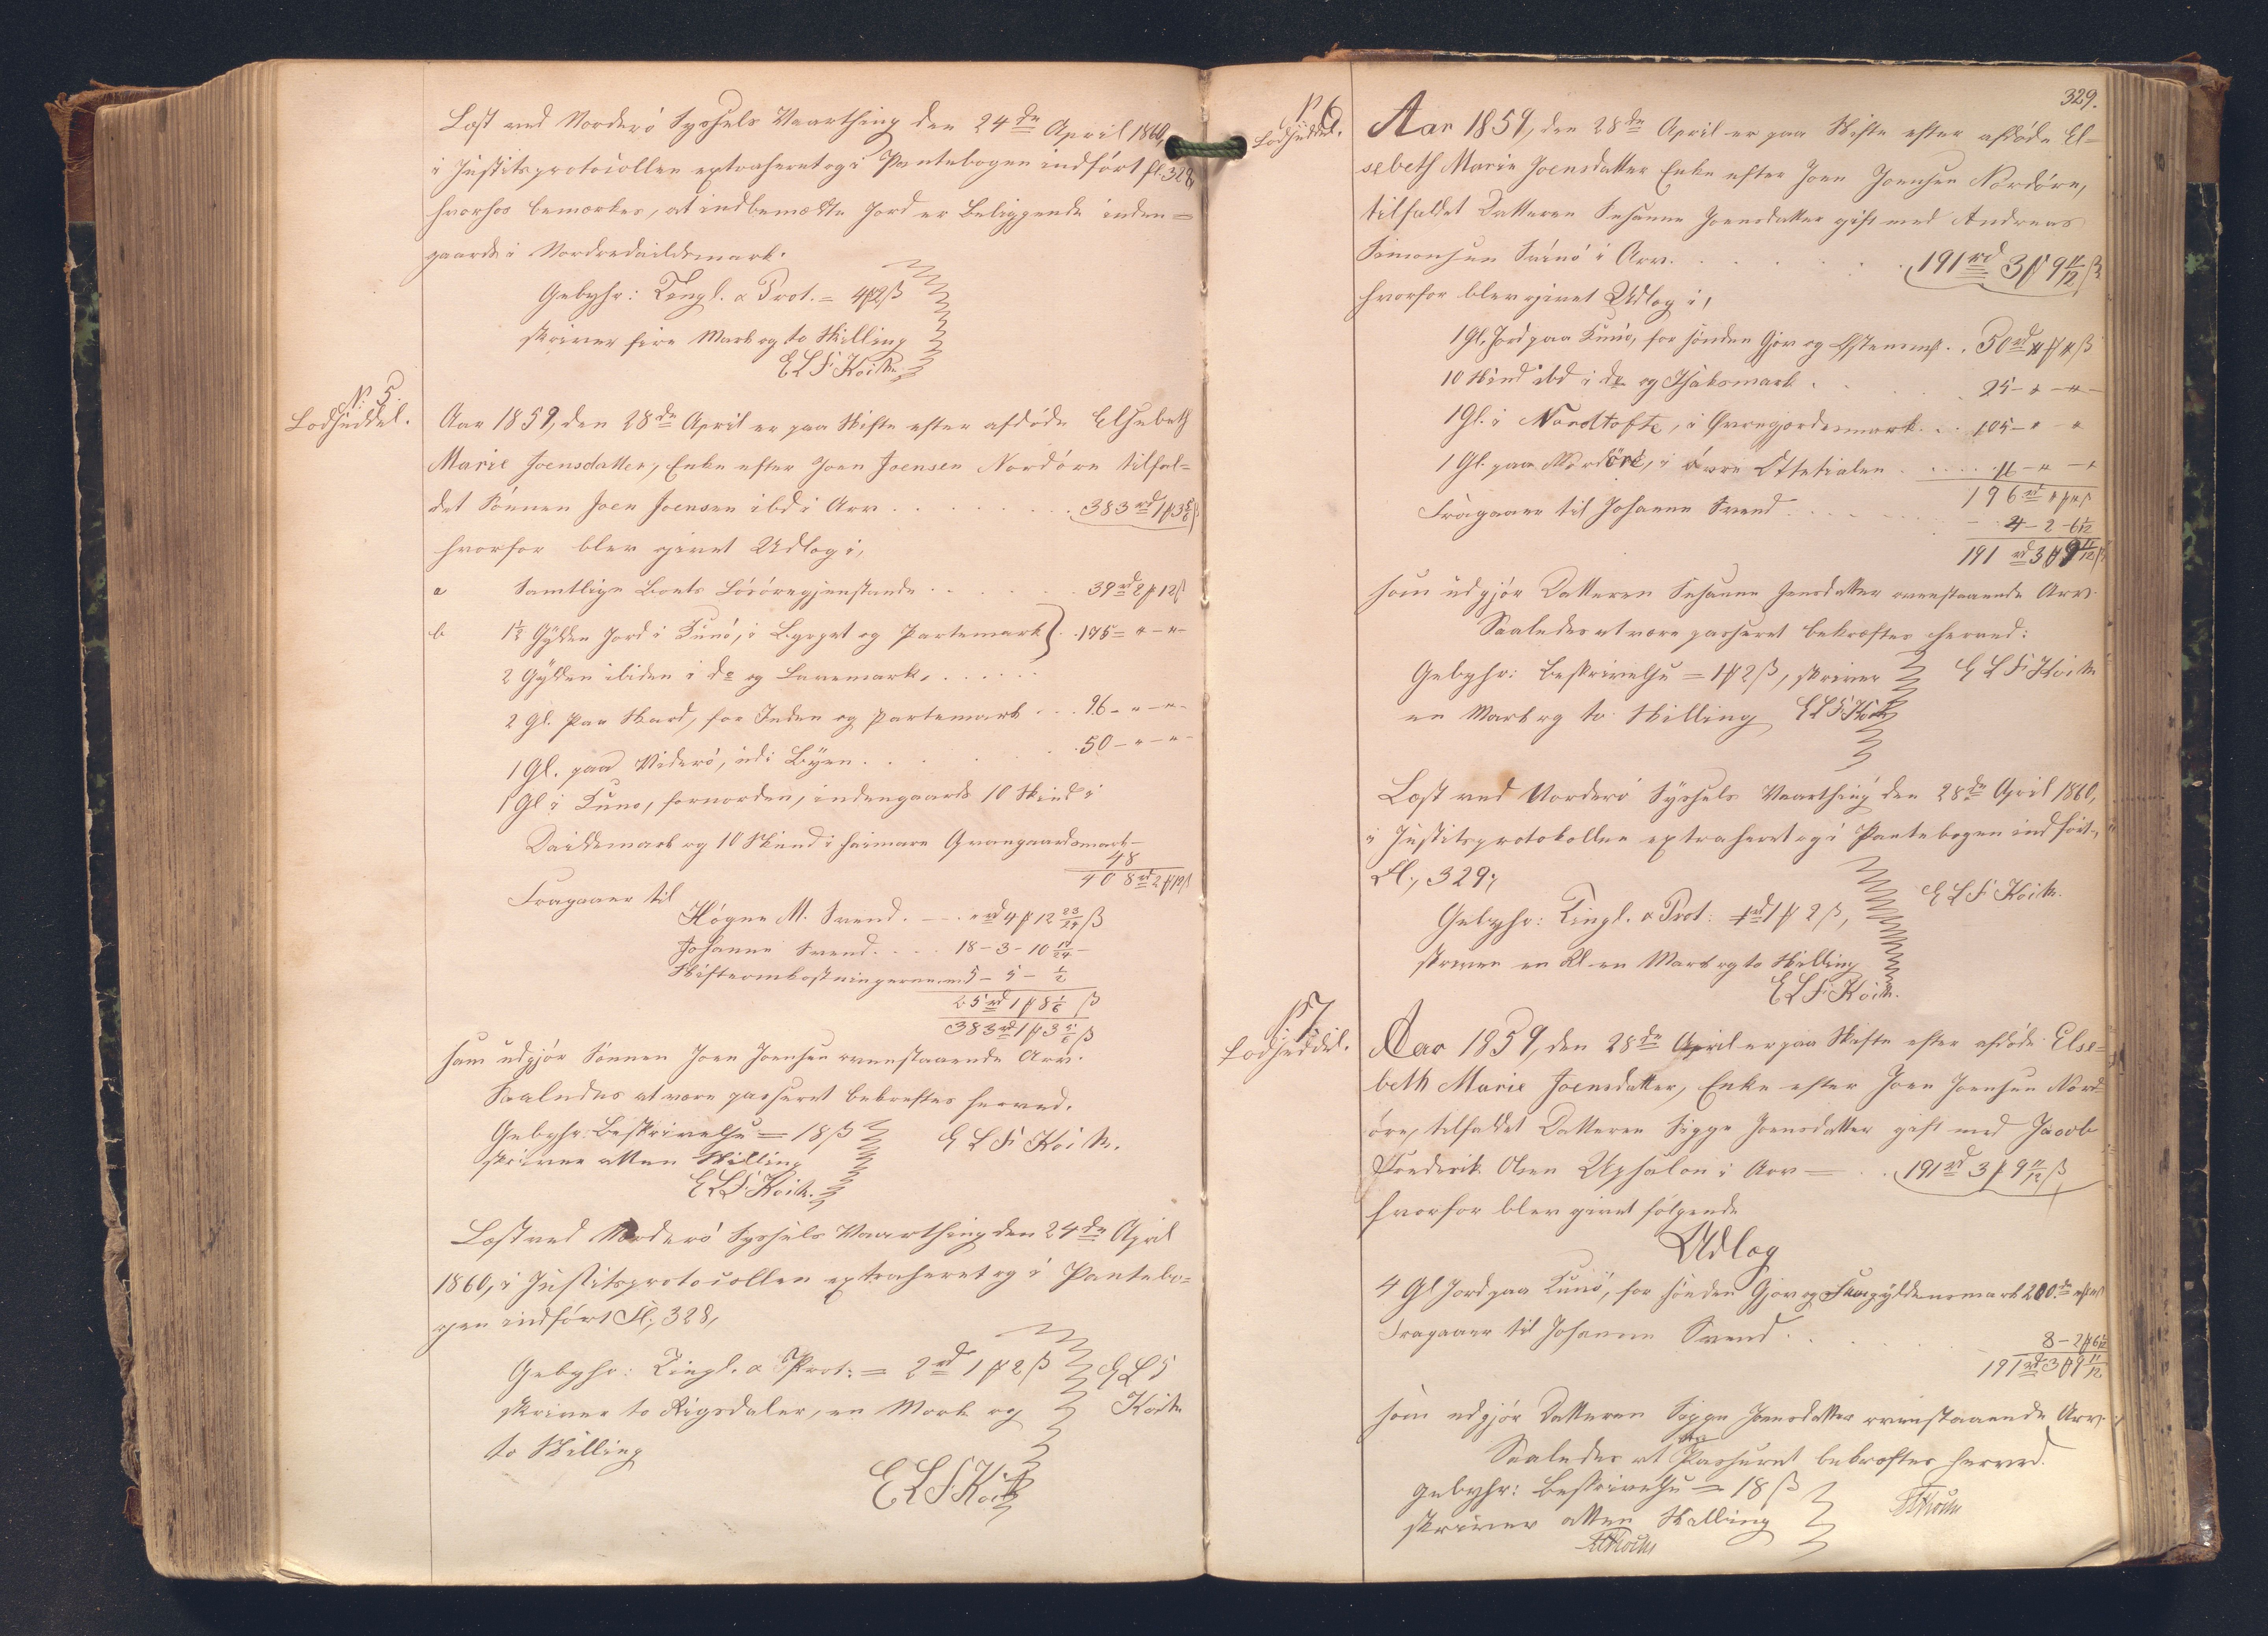 Læst ved Norderö Syssels Vaarthing den 24de April 1860,
i Justitsprotocollen extraheret og i Pantebogen indført fl. 328,
hvorhos bemærkes, at indbemeldte Jord er beliggende inden=
gaards i Nordredaildsmark.
Gebyhr: Tingl. & Prot. = 4 ℳ 2 ß
skriver fire Mark og to Skilling
E L F Koch.
N: 5.
Lodseddel.
Aar 1859, den 28de April er paa Skifte efter afdøde Elsebeth
Marie Joensdatter, Enke efter Joen Joensen Nordøre tilfal=
det Sönnen Joen Joensen ibd i Arv . . . . . . . . 383 rd 1 ℳ 3 5/6 ß
hvorfor blev givet Udlog i,
a Samtlige Boets Lösöregjenstande . . . . . . 39 rd 2 ℳ 12 ß
b 1 1/2 Gylden Jord i Kunö, i Bygget og Partemark } . . 175 = " - " -
2 Gylden ibiden i do og Lavemark, . . . . . .
2 Gl. paa Skard, for Inden og Partemark . . . 96 - " - " -
1 Gl. paa Viderö, udi Byen . . . . . 50 - " - " -
1 Gl i Kunö, fornorden, indengaards 10 Skind i
Daildsmark og 10 Skind i Qvangaardsmark -
48
408 rd 2 ℳ 12 ß
Fragaaer til
Högne M. Svend . - . . " rd 4 ℳ 12 23/24 ß
Johanne Svend . . . . 18 - 3 - 10 17/24 -
Skifteomkostningerne 5 - 5 - 1/2
25 rd 1 ℳ 8 1/6 ß
383 rd 1 ℳ 3 5/6 ß
som udgjör Sönnen Joen Joensen ovenstaaende Arv.
Saaledes at være passeret bekræftes herved.
Gebyhr: Beskrivelse = 18 ß E L F Koch.
skriver atten Skilling
E L F Koch.
Læst ved Norderö Syssels Vaarthing den 24de April
1860, i Justitsprotocollen extraheret og i Pantebo=
gen indført Fl, 328,
Gebyhr: Tingl. & Prot: = 2 rd 1 ℳ 2 ß E L F
skriver to Rigsdaler, en Mark og Koch
to Skilling
E L F Koch
329.
N 6
Lodseddel.
Aar 1859, den 28de April er paa Skifte efter afdøde El=
sebeth Marie Joensdatter Enke efter Joen Joensen Nordøre,
tilfaldet Datteren Susanne Joensdatter gift med Andreas
Simonsen Svinö i Arv. . . . . . . 191 rd 3 ℳ 9 11/12 ß
hvorfor blev givet Udlog i,
1 Gl. Jord paa Kunö, for sönden Gjov og . . 50 rd " ℳ " ß
10 Skind ibd i do og . . . 25 - " - " -
1 Gl. i Nordtofte, i Qvregjordesmark . . . 105 - " - "
1 Gl. paa Nordöre, i övre . . . . . 16 - " - "
196 rd " ℳ " ß
Fragaaer til Johanne Svend . . . . . 4 - 2 - 6 1/12
191 rd 3 ℳ 9 11/12 ß
som udgjör Datteren Susanne Joensdatter ovenstaaende Arv.
Saaledes at være passeret bekræftes herved:
Gebyhr: Beskrivelse = 1 ℳ 2 ß, skriver E L F Koch
en Mark og to Skilling E L F Koch
Læst ved Norderö Syssels Vaarthing den 28de April 1860,
i Justitsprotokollen extraheret og i Pantebogen indfört,
Fl., 329,
Gebyhr: Tingl. & Prot: 1 rd 1 ℳ 2 ß, E L F Koch.
skriver en Rd en Mark og to Skilling
E L F Koch.
N 7
Lodseddel.
Aar 1859, den 28de April er paa Skifte efter afdøde Else=
beth Marie Joensdatter, Enke efter Joen Joensen Nord=
öre, tilfaldet Datteren Sigge Joensdatter gift med Jacob
Frederik Olsen Uphalon i Arv = . . 191 rd 3 ℳ 9 11/12 ß
hvorfor blev givet følgende
Udlog
4 Gl Jord paa Kunö, for sönden Gjov og 200 rd
Fragaaer til Johanne Svend . . 8 - 2 ℳ 6 1/12
191 rd 3 ℳ 9 11/12
som udgjör Datteren Sigge Joensdatter ovenstaaende Arv.
Saaledes at være Passeret bekræftes herved.
Gebyhr: Beskrivelse = 18 ß E L F Koch
skriver atten Skilling
E L F Koch